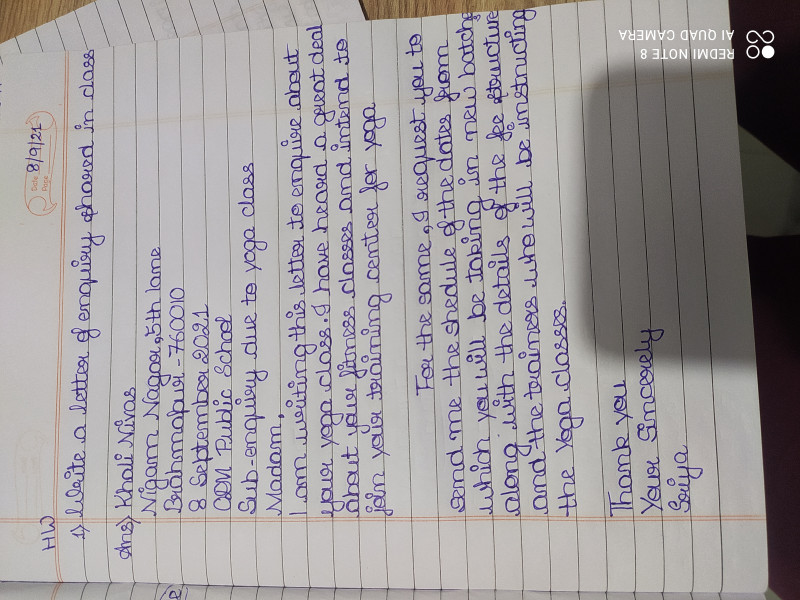 Date 8/9/21
Page
HW
1) Write a letter of enquiry shared in class
Ans) Khali Niwas
Nigam Nagar, 5th lane
Brahmapur - 760010
8 September 2021
ODM Public School
Sub-enquiry due to yoga class
Madam,
I am writing this letter to enquire about
your yoga class. I have heard a great deal
about your fitness classes and intend to
join your training center for yoga
For the same, I request you to
send me the shedule of the dates from
which you will be taking in new batchs
along with the details of the fee structure
and the trainers who will be instructing
the yoga classes.
Thank you
Your Sincerely
Sriya
REDMI NOTE 8
AI QUAD CAMERA